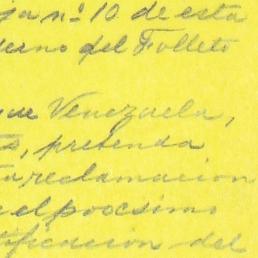 ja nº 10 de esta
erno del Folleto
que Venezuela,
pretenda
reclamacion
el poocsimo
tificacion del